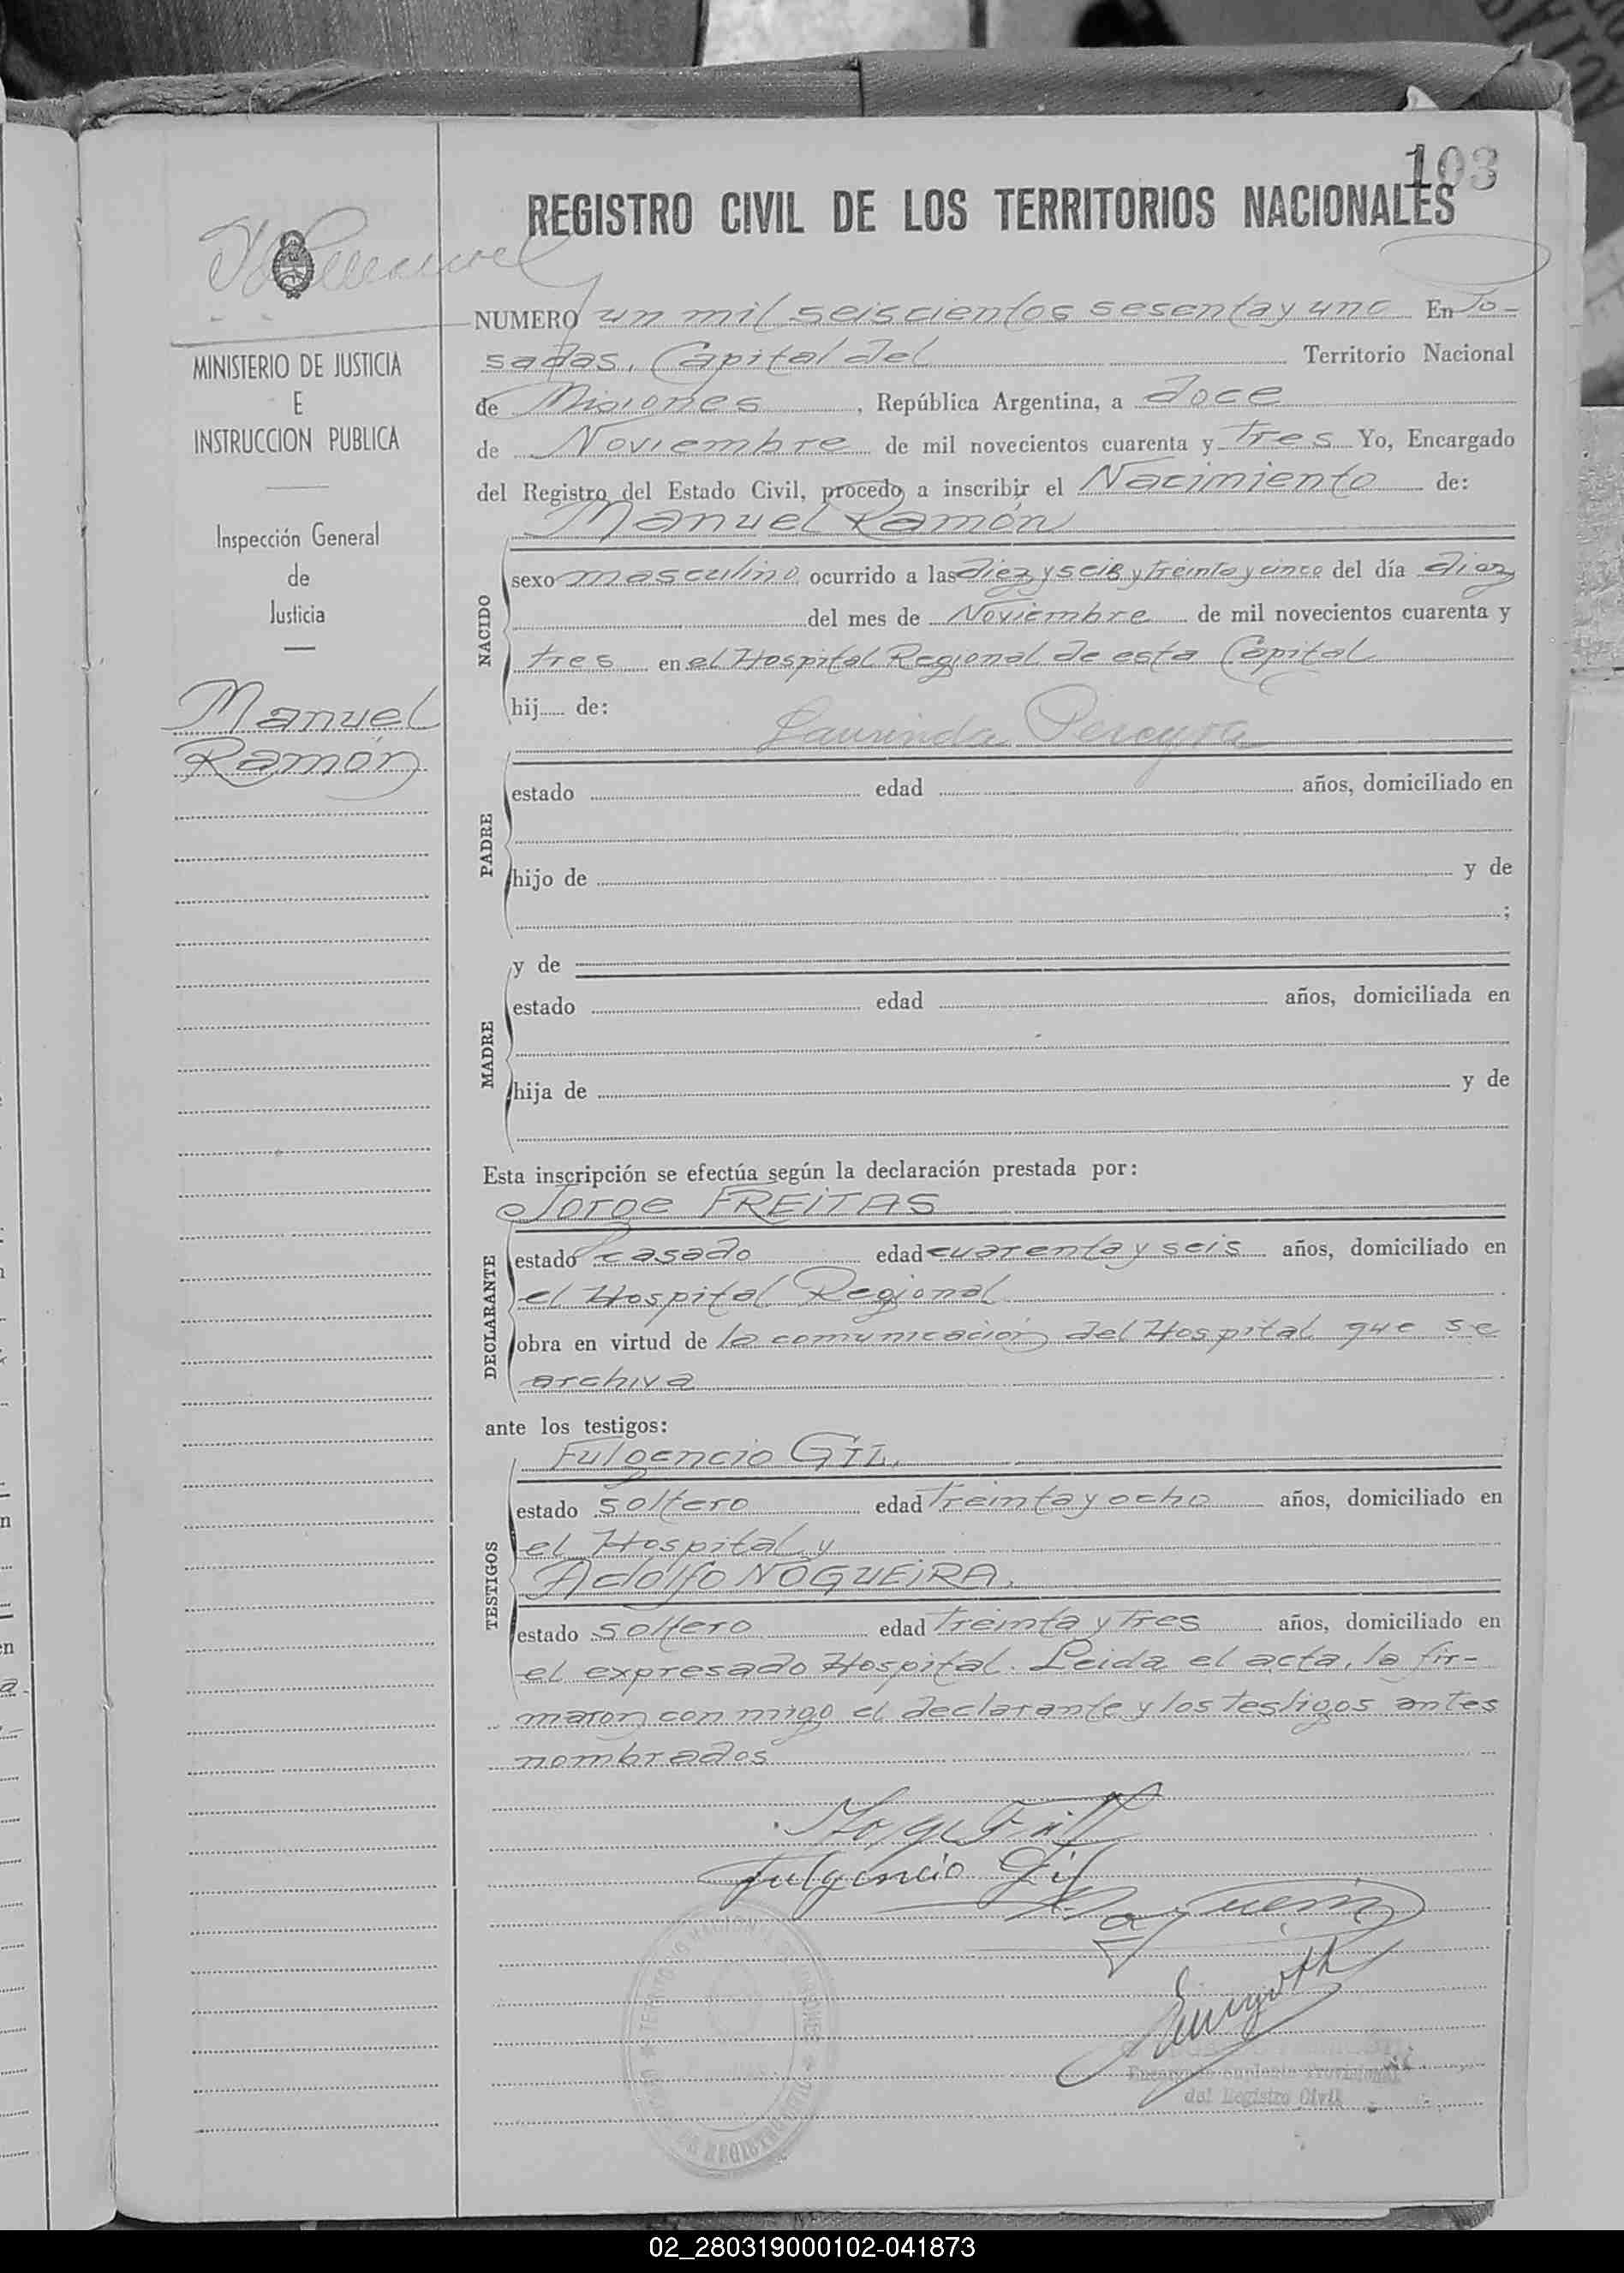 103
REGISTRO CIVIL DE LOS TERRITORIOS NACIONALES
MINISTERIO DE JUSTICIA
E
INSTRUCCION PUBLICA
Inspección General
de
Justicia
Manuel
Ramón
NUMERO un mil seiscientos sesenta y uno En Po-
sadas, Capital del Territorio Nacional
de Misiones, República Argentina, a doce
de Noviembre de mil novecientos cuarenta y tres Yo, Encargado
del Registro del Estado Civil, procedo a inscribir el Nacimiento de:
Manuel Ramón
NACIDO
sexo masculino ocurrido a las diez y seis y treinta y cinco del día diez
del mes de Noviembre de mil novecientos cuarenta y
tres en el Hospital Regional de esta Capital
hij de:
Laurinda Pereyra
PADRE
estado edad años, domiciliado en
hijo de y de
;
y de
MADRE
estado edad años, domiciliada en
hija de y de
Esta inscripción se efectúa según la declaración prestada por:
Jorge FREITAS
DECLARANTE
estado casado edad cuarenta y seis años, domiciliado en
el Hospital Regional
obra en virtud de la comunicación del Hospital que se
archiva
ante los testigos:
Fulgencio GIL,
TESTIGOS
estado soltero edad treinta y ocho años, domiciliado en
el Hospital y
Adolfo NOGUEIRA,
estado soltero edad treinta y tres años, domiciliado en
el expresado Hospital. Leida el acta, la fir-
maron con migo el declarante y los testigos antes
nombrados
Fulgencio Gil
del Registro Civil
02_280319000102-041873